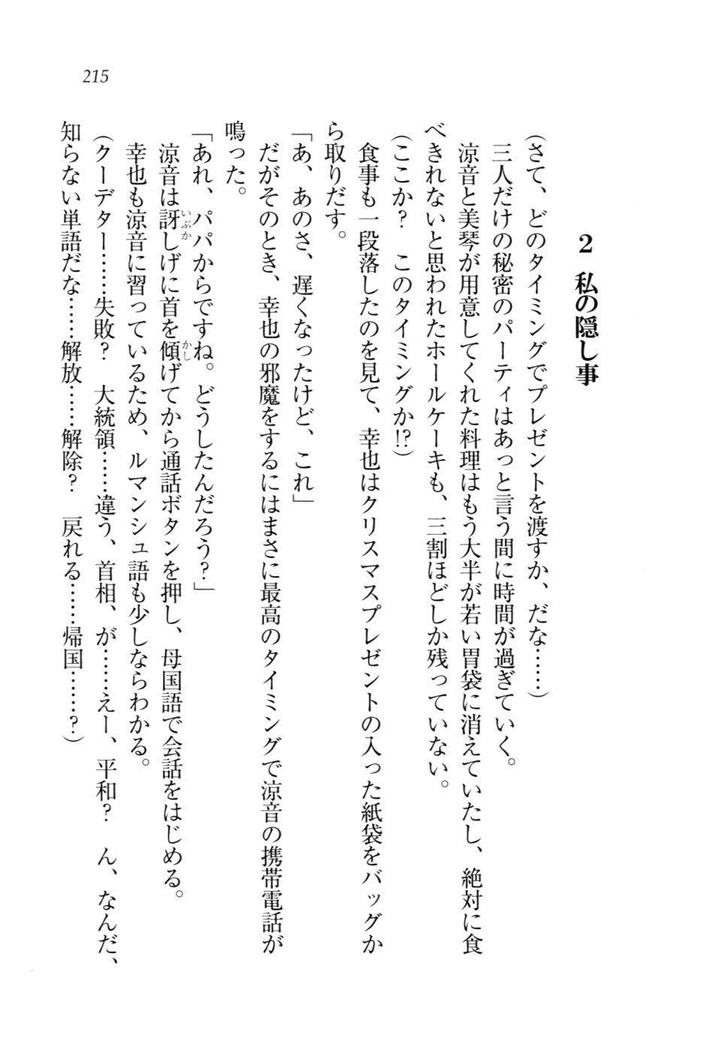 215
2 私の隠し事
(さて、どのタイミングでプレゼントを渡すか、だな……)
三人だけの秘密のパーティはあっと言う間に時間が過ぎていく。
涼音と美琴が用意してくれた料理はもう大半が若い胃袋に消えていたし、絶対に食
べきれないと思われたホールケーキも、三割ほどしか残っていない。
(ここか? このタイミングか!?)
食事も一段落したのを見て、幸也はクリスマスプレゼントの入った紙袋をバッグか
ら取りだす。
「あ、あのさ、遅くなったけど、これ」
だがそのとき、幸也の邪魔をするにはまさに最高のタイミングで涼音の携帯電話が
鳴った。
「あれ、パパからですね。どうしたんだろう?」
涼音は訝しげに首を傾げてから通話ボタンを押し、母国語で会話をはじめる。
いぶか
かし
幸也も涼音に習っているため、ルマンシュ語も少しならわかる。
(クーデター……失敗? 大統領……違う、首相、が……えー、平和? ん、なんだ、
知らない単語だな……解放……解除? 戻れる……帰国……?)